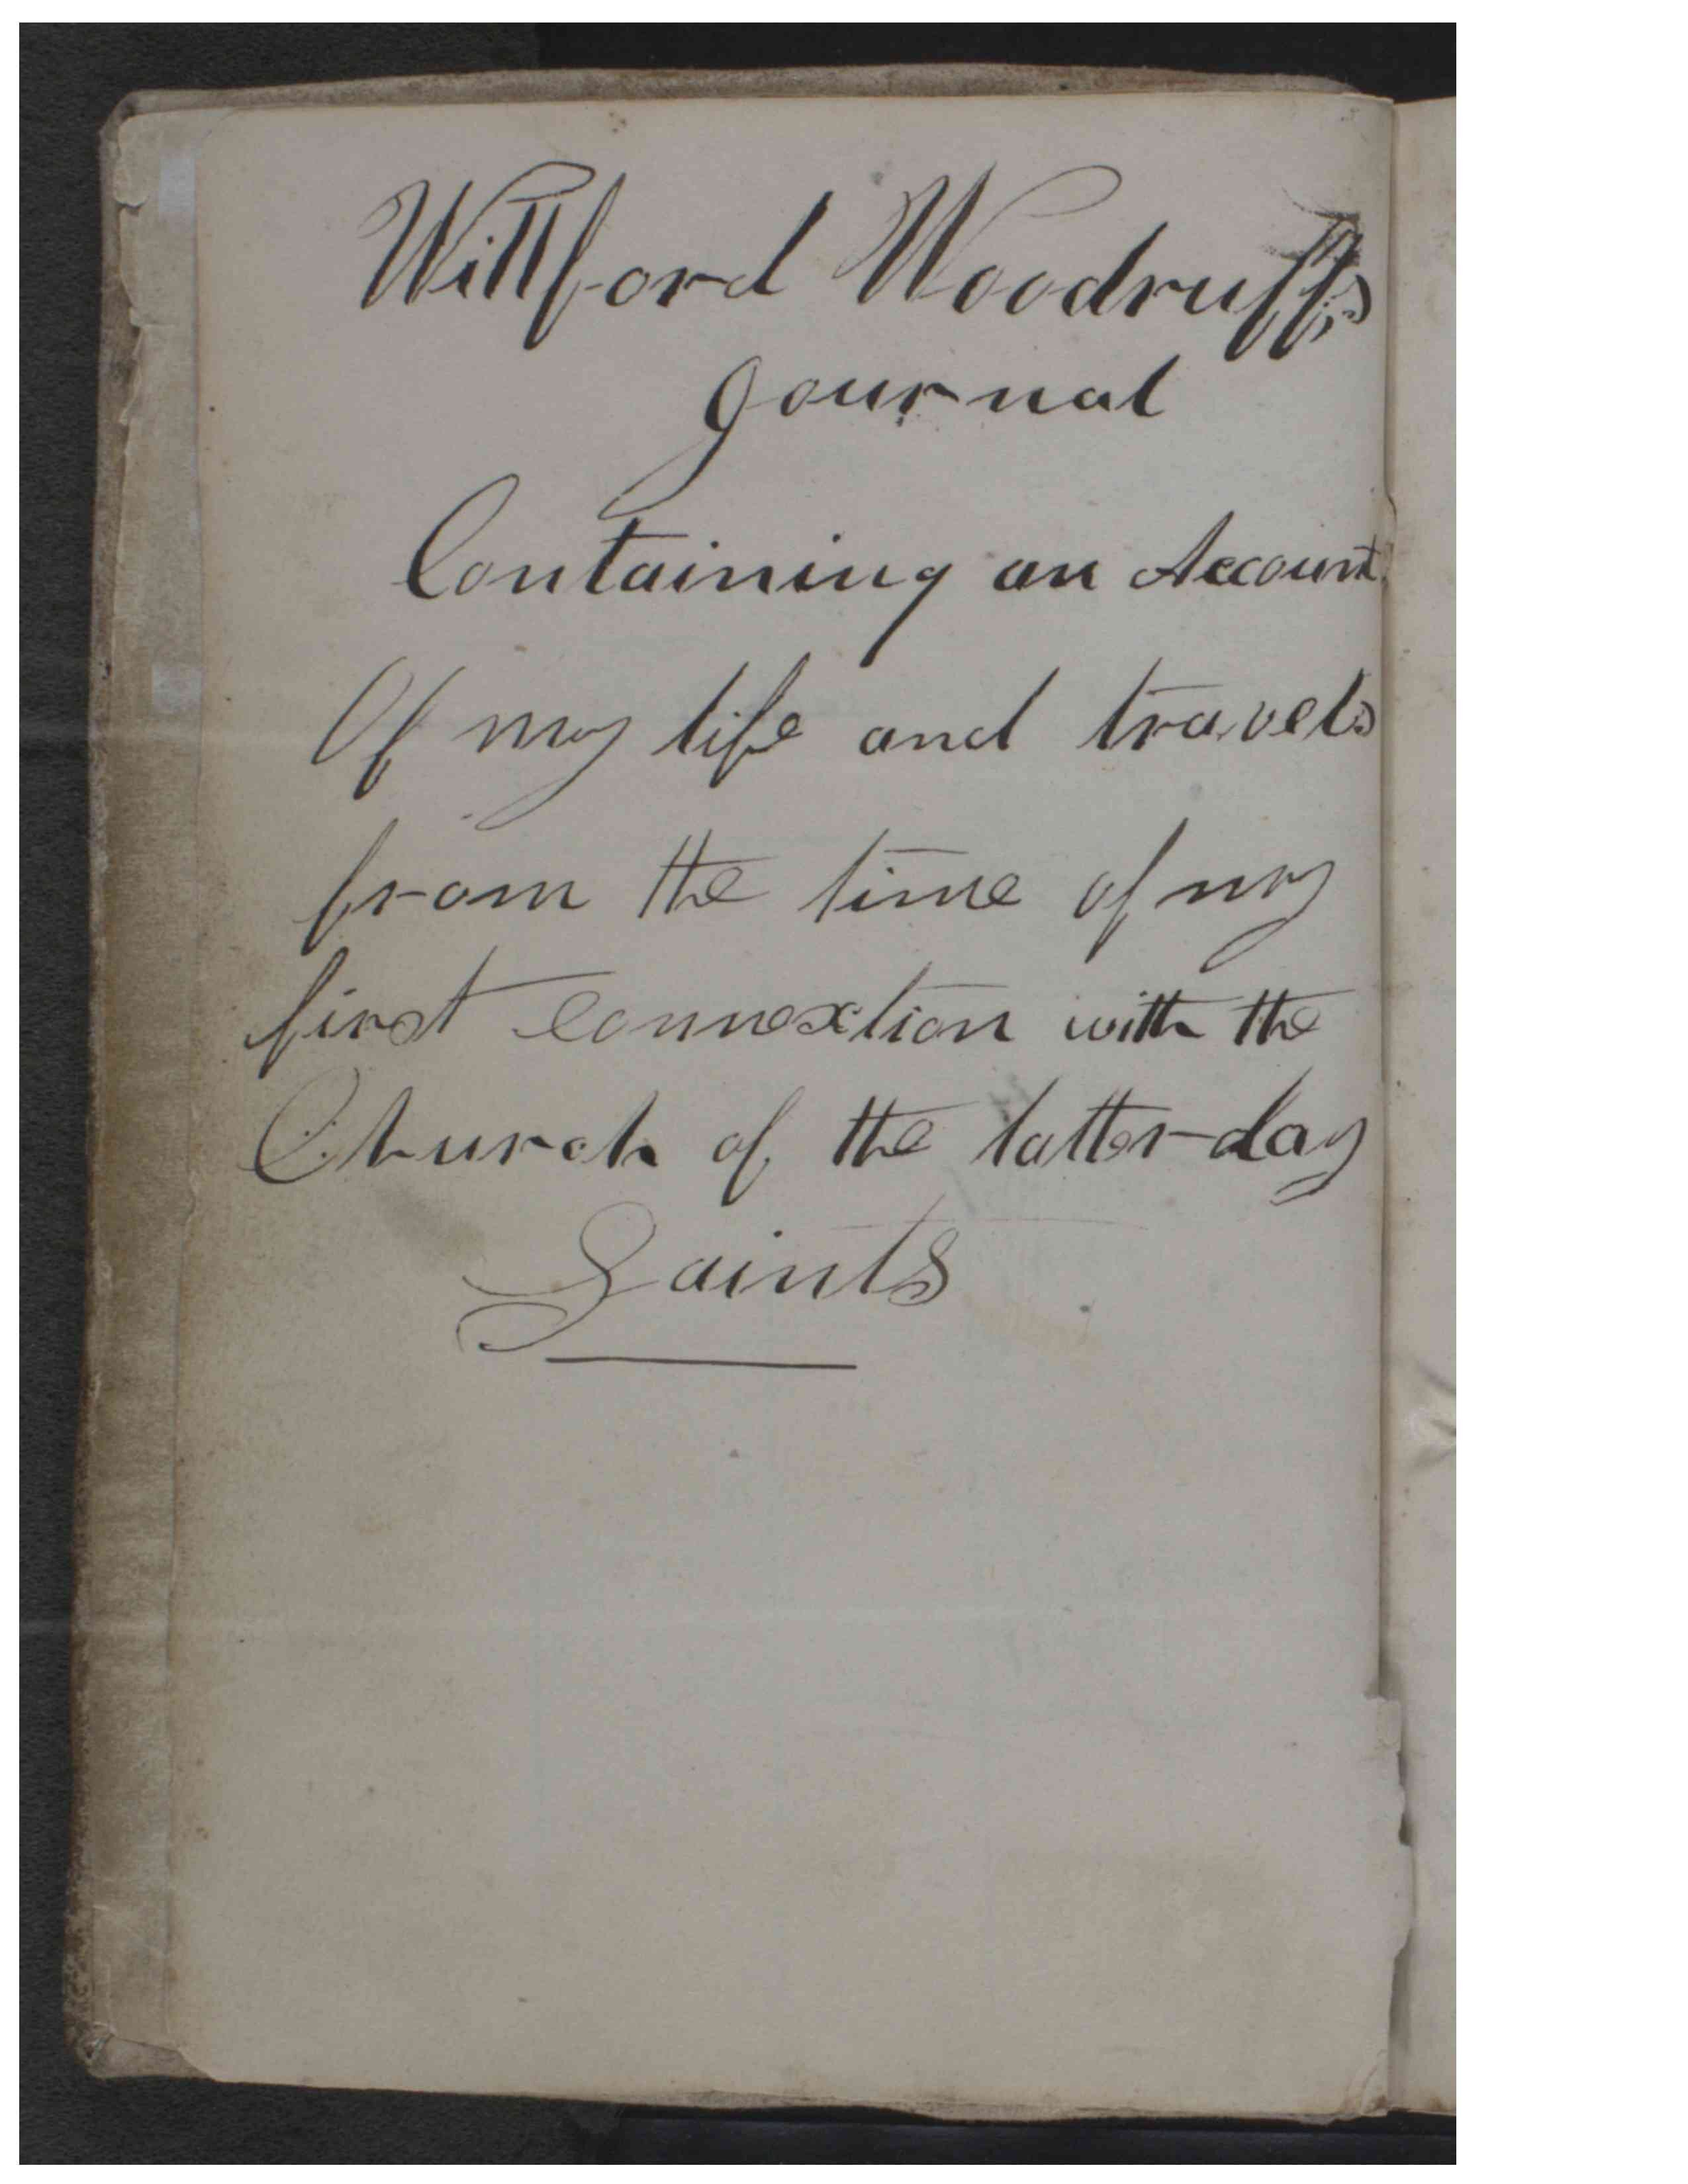 Willford Woodruffs
Journal
Containing an Account
Of my life and travels
from the time of my
first connextion with the
Church of the latter-day
Saints